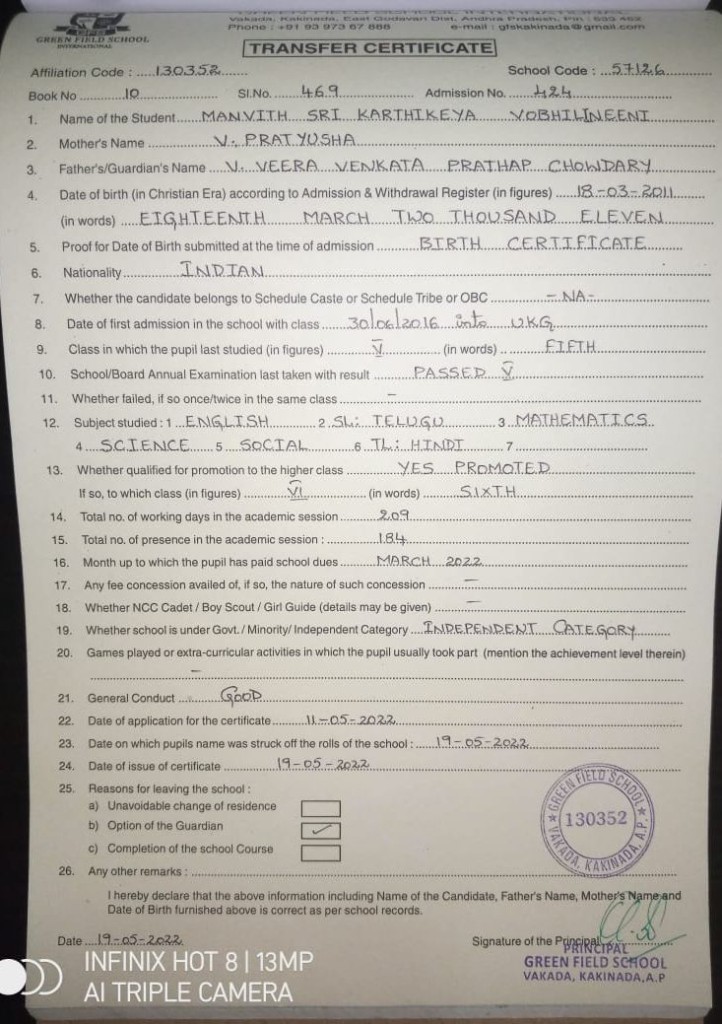 GREEN FIELD SCHOOL
INTERNATIONAL
Vakada, Kakinada, East Godavari Dist. Andhra Pradesh, Pin : 533 462
Phone : +91 93 973 67 888 e-mail : gfskakinada@gmail.com
TRANSFER CERTIFICATE
Affiliation Code : 130352 School Code : 57126
Book No 10 Sl.No. 469 Admission No. 424
1. Name of the Student MANVITH SRI KARTHIKEYA VOBHILINEENI
2. Mother's Name V. PRATYUSHA
3. Father's/Guardian's Name V. VEERA VENKATA PRATHAP CHOWDARY
4. Date of birth (in Christian Era) according to Admission & Withdrawal Register (in figures) 18-03-2011
(in words) EIGHTEENTH MARCH TWO THOUSAND ELEVEN
5. Proof for Date of Birth submitted at the time of admission BIRTH CERTIFICATE
6. Nationality INDIAN
7. Whether the candidate belongs to Schedule Caste or Schedule Tribe or OBC - NA -
8. Date of first admission in the school with class 30/06/2016 into U.K.G
9. Class in which the pupil last studied (in figures) V (in words) FIFTH
10. School/Board Annual Examination last taken with result PASSED V
11. Whether failed, if so once/twice in the same class -
12. Subject studied : 1 ENGLISH 2 SL: TELUGU 3 MATHEMATICS
4 SCIENCE 5 SOCIAL 6 TL: HINDI 7
13. Whether qualified for promotion to the higher class YES PROMOTED
If so, to which class (in figures) VI (in words) SIXTH
14. Total no. of working days in the academic session 209
15. Total no. of presence in the academic session : 184
16. Month up to which the pupil has paid school dues MARCH 2022
17. Any fee concession availed of, if so, the nature of such concession -
18. Whether NCC Cadet / Boy Scout / Girl Guide (details may be given) -
19. Whether school is under Govt. / Minority/ Independent Category INDEPENDENT CATEGORY
20. Games played or extra-curricular activities in which the pupil usually took part (mention the achievement level therein)
-
21. General Conduct GOOD
22. Date of application for the certificate 11-05-2022
23. Date on which pupils name was struck off the rolls of the school : 19-05-2022
24. Date of issue of certificate 19-05-2022
25. Reasons for leaving the school :
a) Unavoidable change of residence
b) Option of the Guardian ✓
c) Completion of the school Course
GREEN FIELD SCHOOL
130352
VAKADA, KAKINADA, A.P.
26. Any other remarks :
I hereby declare that the above information including Name of the Candidate, Father's Name, Mother's Name and
Date of Birth furnished above is correct as per school records.
Date 19-05-2022 Signature of the Principal
PRINCIPAL
GREEN FIELD SCHOOL
VAKADA, KAKINADA, A.P
INFINIX HOT 8 | 13MP
AI TRIPLE CAMERA